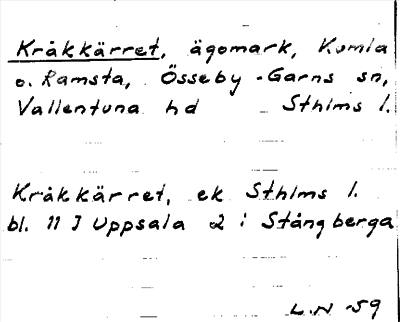 Kråkkärret, ägomark, Kumla
o. Ramsta, Össeby-Garns sn,
Vallentuna hd Sthlms l.
Kråkkärret, ek Sthlms l.
bl. 11 J Uppsala 2 i Stångberga
L.N -59